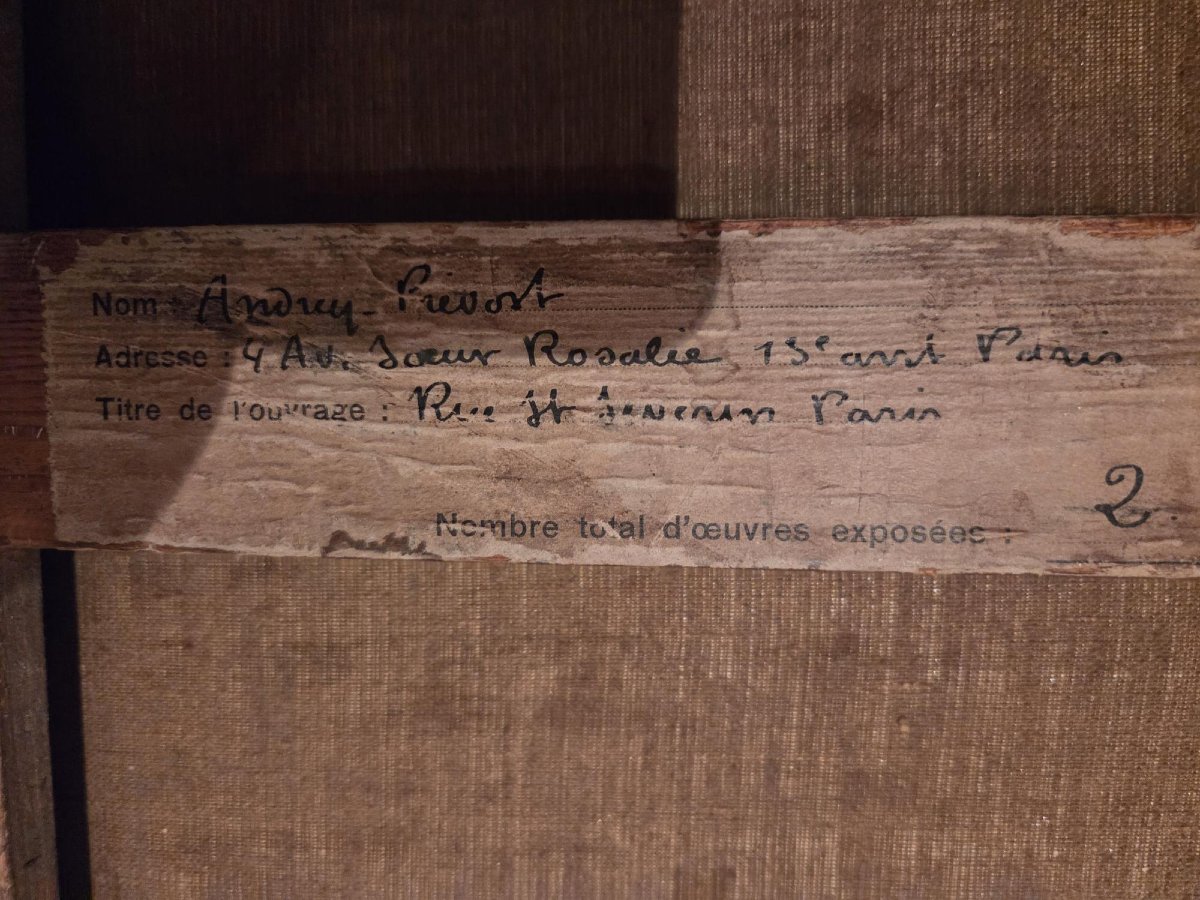 Nom : Andrey-Prevost
Adresse : 4 Av. Sœur Rosalie 13e arrt Paris
Titre de l'ouvrage : Rue St Severin Paris
Nombre total d'œuvres exposées : 2